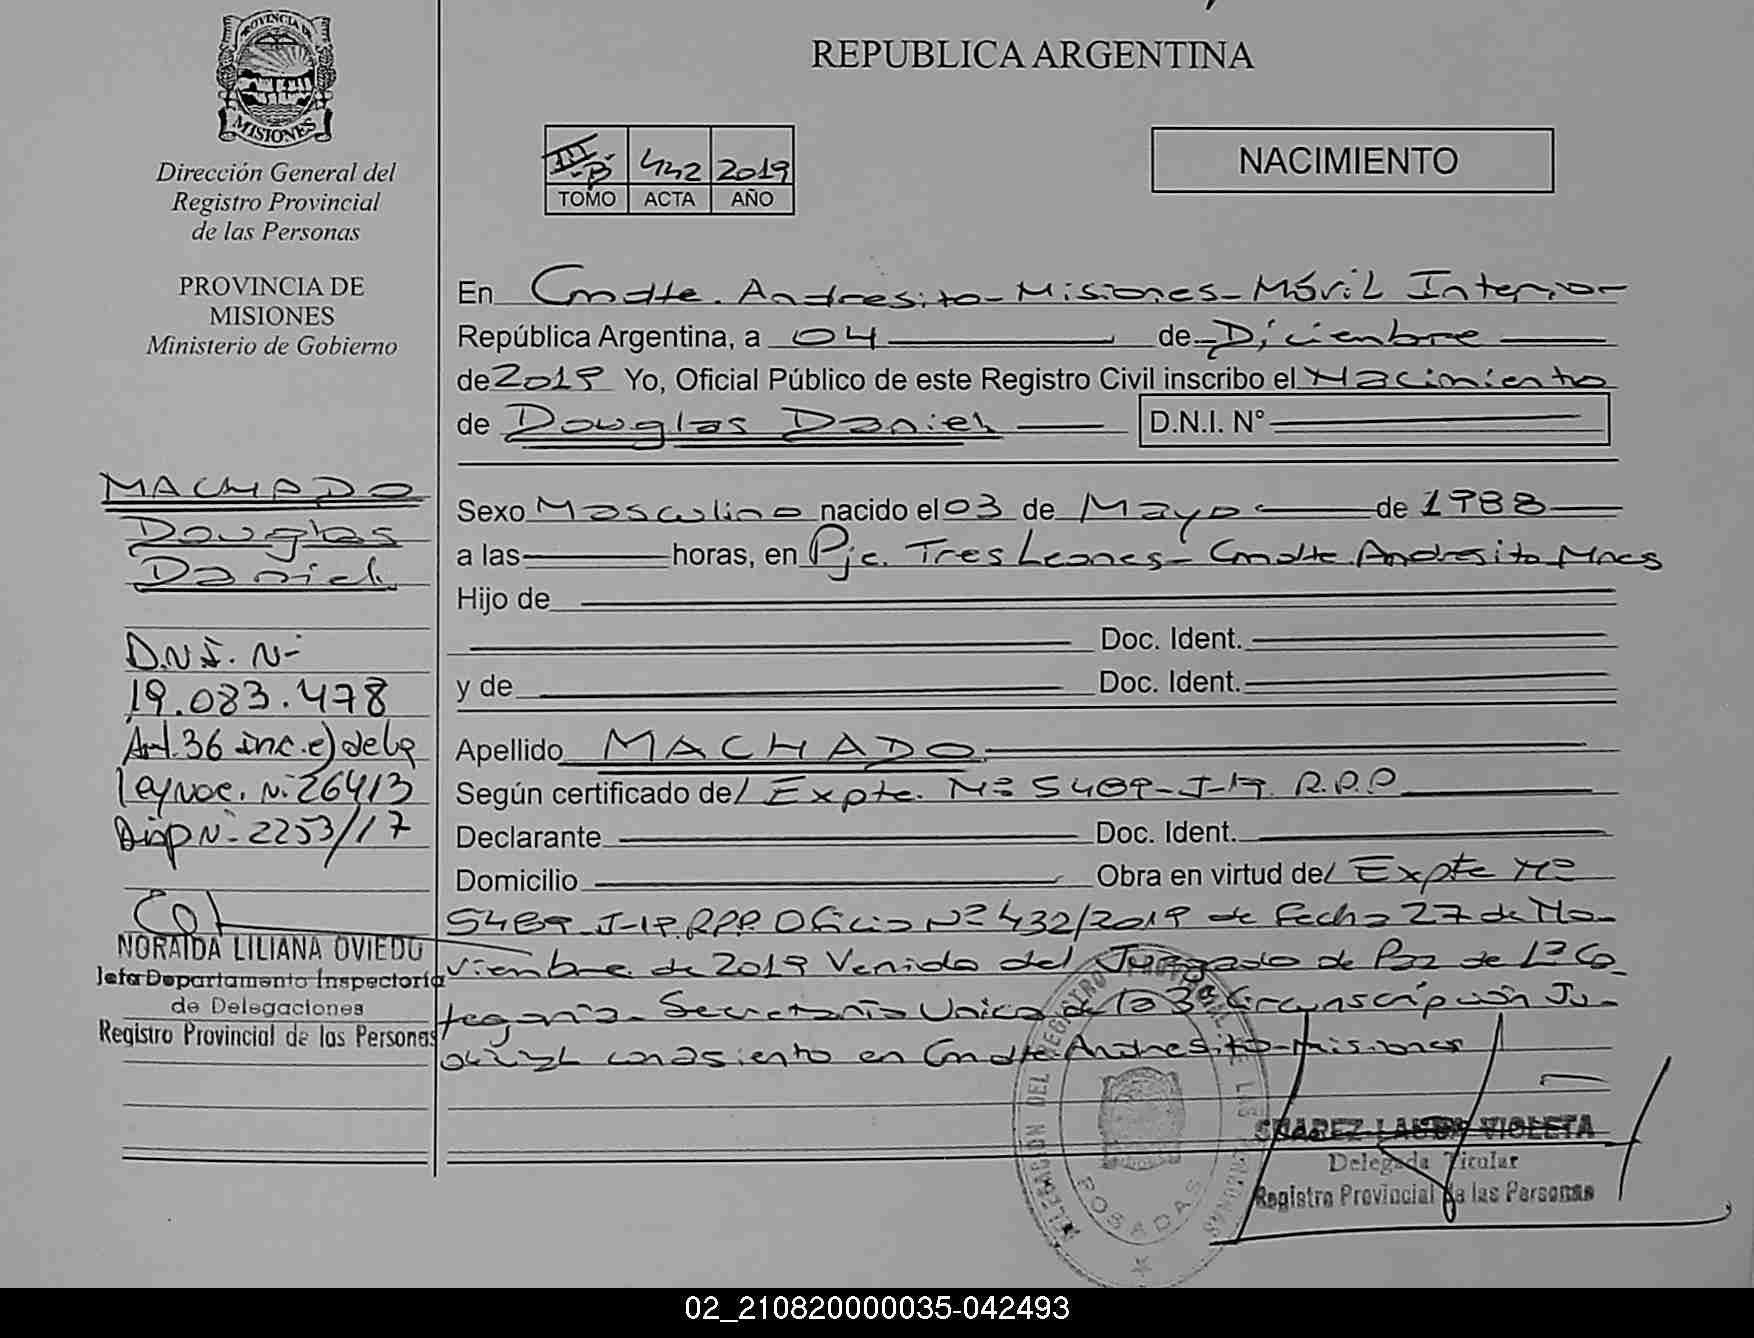 PROVINCIA DE
MISIONES
Dirección General del
Registro Provincial
de las Personas
PROVINCIA DE
MISIONES
Ministerio de Gobierno
MACHADO
Douglas
Daniel
D.N.I. Nº
19.083.478
Art.36 inc.e) de la
Ley Nac. Nº 26413
Disp Nº 2253/17
NORAIDA LILIANA OVIEDO
Jefa Departamento Inspectoría
de Delegaciones
Registro Provincial de las Personas
REPUBLICA ARGENTINA
III-B 442 2019
TOMO ACTA AÑO
NACIMIENTO
En Cmdte. Andresito - Misiones - Móvil Interior
República Argentina, a 04 de Diciembre
de 2019 Yo, Oficial Público de este Registro Civil inscribo el Nacimiento
de Douglas Daniel D.N.I. Nº
Sexo Masculino nacido el 03 de Mayo de 1988
a las horas, en Pje. Tres Leones - Cmdte. Andresito Mnes
Hijo de
Doc. Ident.
y de Doc. Ident.
Apellido MACHADO
Según certificado de/ Expte. Nº 5489-J-19. R.P.P
Declarante Doc. Ident.
Domicilio Obra en virtud de/ Expte Nº
5489-J-19.RPP. Oficio Nº 432/2019 de fecha 27 de No-
viembre de 2019 Venido del Juzgado de Paz de 1ª Ca-
tegoría - Secretaría Unica de la 3ª Circunscripción Ju-
dicial con asiento en Cmdte. Andresito - Misiones
POSADAS
SUAREZ LAURA VIOLETA
Delegada Titular
Registro Provincial de las Personas
02_210820000035-042493